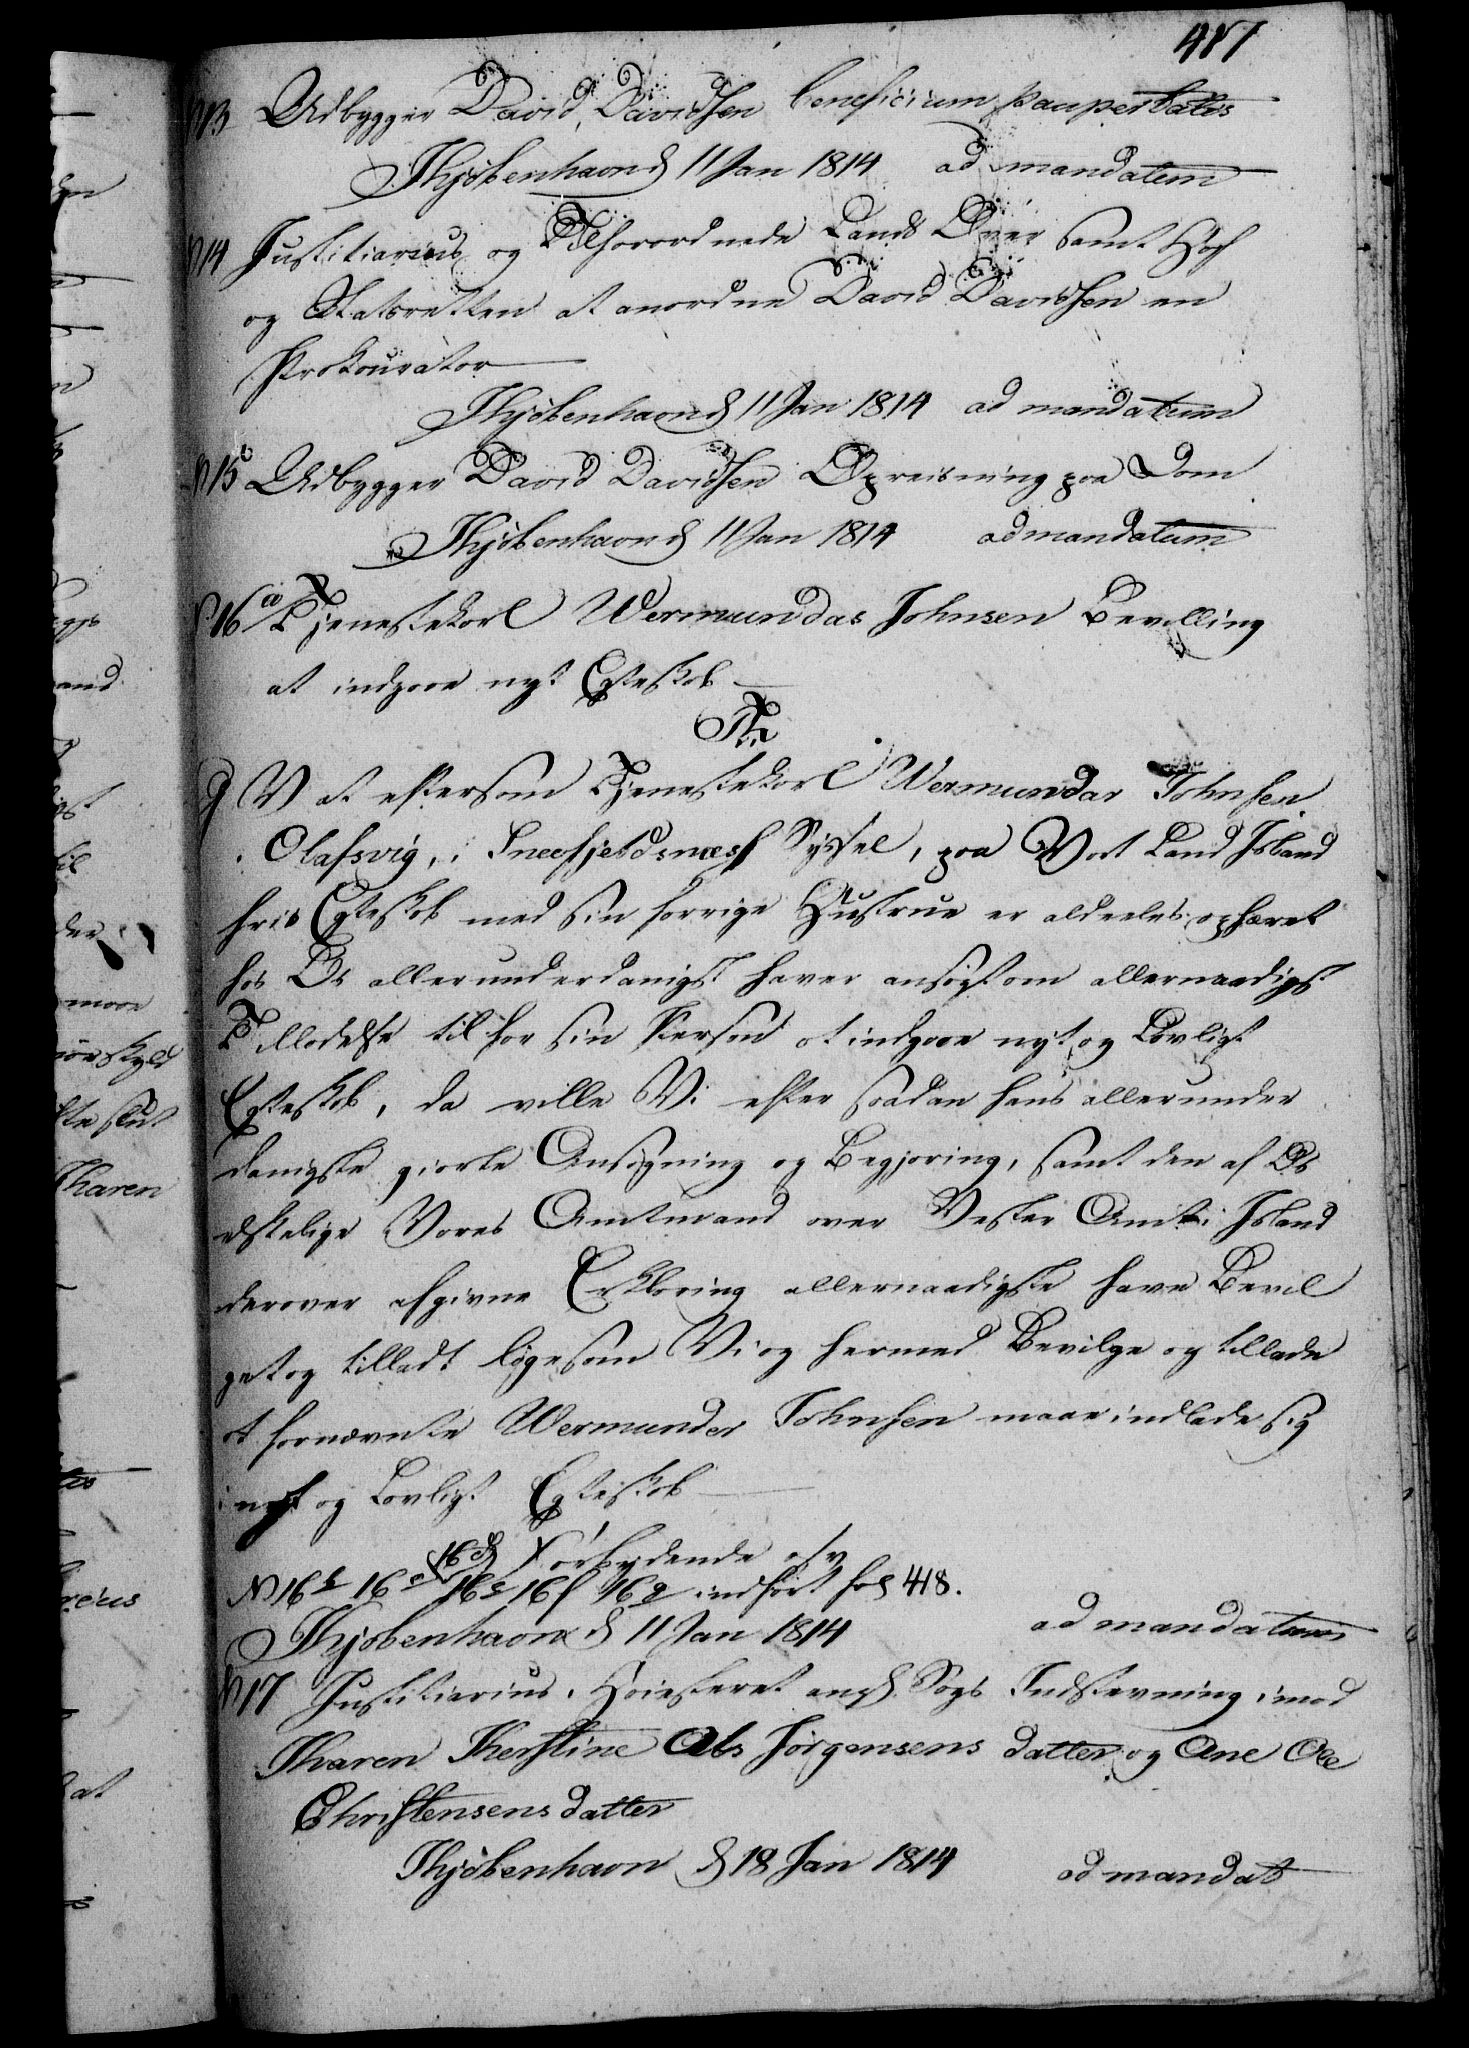 417
N 13 Udbygger David Davidsen beneficium paupertatis
Kjøbenhavn d 11 Jan 1814 ad mandatum
N 14 Justitiarius og Tilforordnede Lands Over samt Hof
og Stadsretten at anordne David Davidsen en
Prokurator
Kjøbenhavn d 11 Jan 1814 ad mandatum
N 15 Udbygger David Davidsen Opreisning paa Dom
Kjøbenhavn d 11 Jan 1814 ad mandatum
N 16 a Tjenestekarl Wermundas Johnsen Bevilling
at indgaae nyt Egteskab
Th
V at eftersom Tjenestekarl Wermundar Johnsen
Olafsvig, i Sneefjeldsness Syssel, paa Vort Land Island
hvis Egteskab med sin forrige Hustrue er aldeeles ophævet
hos Os allerunderdanigst haver ansøgt om allernaadigst
Tilladelse til for sin Person at indgaae nyt og Lovligt
Egteskab, da ville Vi efter saadan hans allerunder
danigste giorte Ansøgning og Begjæring, samt den af Os
elskelige Vores Amtmand over Vester Amtet i Island
derover afgivne Erklæring allernaadigste have Bevil
get og tilladt ligesom Vi og hermed Bevilge og tillade
at fornævnte Wermunder Johnsen maae indlade sig
i nyt og Lovligt Egteskab
Forbydende osv
N 16 b 16 c 16 d 16 e 16 f 16 g indført fol 418.
Kjøbenhavn d 11 Jan 1814 ad mandatum
N 17 Justitiarius i Høiesteret angd Sags Indstevning imod
Karen Kerstine Ols Jörgensens datter og Ane Ole
Christensens datter
Kjøbenhavn d 18 Jan 1814 ad mandat